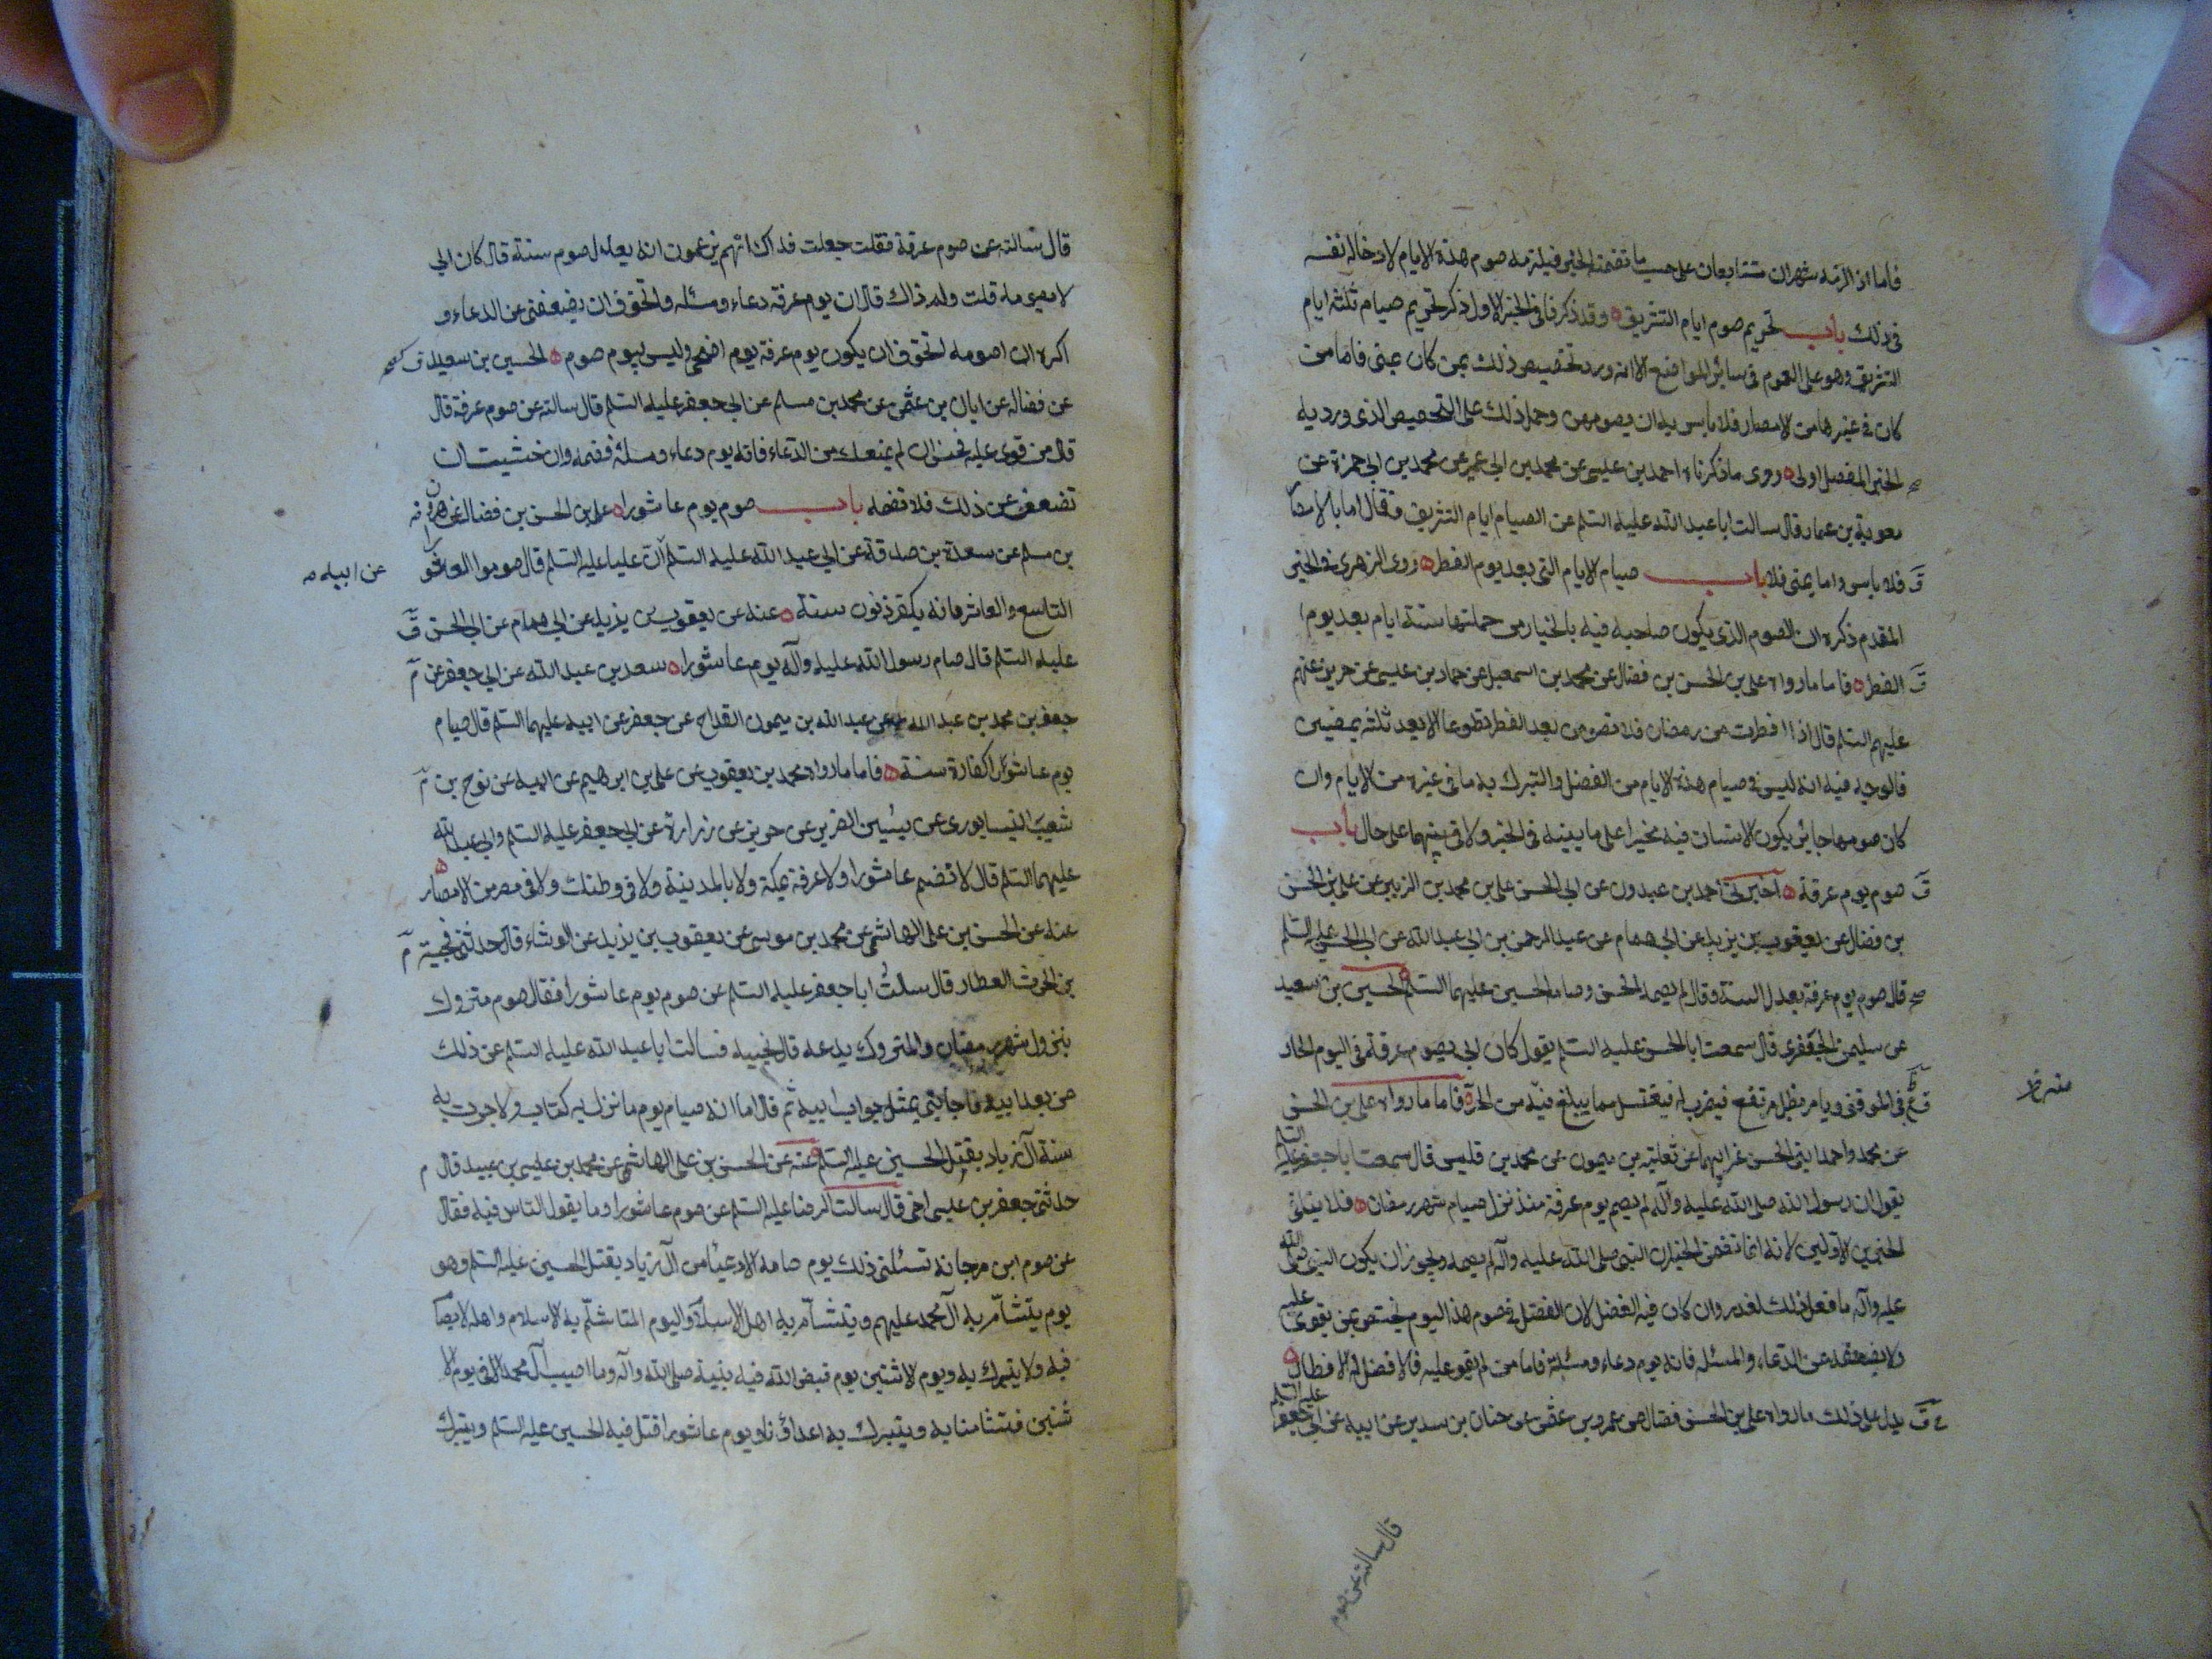 فاما اذا لزمه شهران متتابعان على حسب ما تضمنه الخبر فيلزمه صوم هذه الايام لادخاله نفسه
فى ذلك باب تحريم صوم ايام التشريق وقد ذكرنا فى الخبر الاول ذكر تحريم صيام ثلثه ايام
التشريق وهو على العموم فى سائر المواضع الا انه ورد تخصيص ذلك بمن كان بمنى فاما من
كان فى غيرها من الامصار فلا باس به ان يصومهن وحمل ذلك على التخصيص الذى ورد به
الخبر المفصل اولى وروى ما ذكرناه احمد بن عليسى عن محمد بن ابى عمير عن محمد بن ابى حمزة عن
معوية بن عمار قال سالت ابا عبد الله عليه السلم عن الصيام ايام التشريق فقال اما بالامصار
فلا باس واما بمنى فلا باب صيام الايام التى بعد يوم الفطر روى الزهرى فى الخبر
المقدم ذكره ان الصوم الذى يكون صاحبه فيه بالخيار من جملتها ستة ايام بعد يوم
الفطر فاما ما رواه على بن الحسن بن فضال عن محمد بن اسمعيل عن حماد بن عليسى عن حريز عنهم
عليهم السلم قال اذا افطرت من رمضان فلا تصومن بعد الفطر تطوعا الا بعد ثلثه يمضين
فالوجه فيه انه ليس فى صيام هذه الايام من الفضل والتبرك به ما فى غيره من الايام وان
كان صومها جايز يكون الانسان فيه مخيرا على ما بينه فى الخبر ولا فى بينهما على حال باب
صوم يوم عرفة اخبرنى احمد بن عبدون عن ابى الحسن على بن محمد بن الزبير عن على بن الحسن
بن فضال عن يعقوب بن يزيد عن ابى همام عن عبد الرحمن بن ابى عبد الله عن ابى الحسن عليه السلم
قال صوم يوم عرفة يعدل السنة وقال لم يصمه الحسن وصامه الحسين عليهما السلم الحسين بن سعيد
عن سليمن الجعفرى قال سمعت ابا الحسن عليه السلم يقول كان ابى يصوم عرفة فى اليوم الحار
فى الموقف ويامر بظل مرتفع فيضرب له فيغتسل مما يبلغ منه من الحر فاما ما رواه على بن الحسن
عن محمد واحمد ابنى الحسن عن ابيهما عن ثعلبة بن ميمون عن محمد بن قليس قال سمعت ابا جعفر عليه السلم
يقول ان رسول الله صلى الله عليه وآله لم يصم يوم عرفة منذ نزل صيام شهر رمضان فلا ينافى
الخبرين الاولين لانه انما تضمن الخبر ان النبى صلى الله عليه وآله لم يصمه ويجوز ان يكون النبى صلى الله
عليه وآله ما فعل ذلك لعذر وان كان فيه الفضل لان الفضل فى صوم هذا اليوم يختص بمن يقوى عليه
ولا يضعفه عن الدعاء والمسئله فانه يوم دعاء ومسئلة فاما من لم يقو عليه فالافضل له الافطار
يدل على ذلك ما رواه على بن الحسن فضال عن عمرو بن عثمن عن حنان بن سدير عن ابيه عن ابى جعفر عليه السلم
قال سالته عن صوم
قال سالته عن صوم عرفة فقلت جعلت فداك انهم يزعمون انه يعدل صوم سنة قال كان ابى
لا يصومه قلت ولم ذاك قال ان يوم عرفة دعاء ومسئله واتخوف ان يضعفنى عن الدعاء و
اكره ان اصومه اتخوف ان يكون يوم عرفة يوم اضحى وليس بيوم صوم الحسين بن سعيد
عن فضاله عن ابان بن عثمن عن محمد بن مسلم عن ابى جعفر عليه السلم قال سالته عن صوم عرفة قال
قال من قوى عليه فحسن ان لم يمنعك من الدعاء فانه يوم دعاء ومسئلة فصمه وان خشيت ان
تضعف عن ذلك فلا تصمه باب صوم يوم عاشورا على بن الحسن بن فضال عن هرون
بن مسلم عن مسعدة بن صدقة عن ابى عبد الله عليه السلم ان عليا عليه السلم قال صوموا العاشورا
عن ابيه
التاسع والعاشر فانه يكفر ذنوب سنة عنه عن يعقوب بن يزيد عن ابى همام عن ابى الحسن
عليه السلم قال صام رسول الله عليه وآله يوم عاشورا سعد بن عبد الله عن ابى جعفر عن
جعفر بن محمد بن عبد الله عن عبد الله بن ميمون القداح عن جعفر عن ابيه عليهما السلم قال صيام
يوم عاشورا كفارة سنة فاما ما رواه محمد بن يعقوب عن على بن ابرهيم عن ابيه عن نوح بن
شعيب النيسابورى عن ياسين الضرير عن حريز عن زرارة عن ابى جعفر عليه السلم وابى عبد الله
عليهما السلم قال لا تصم عاشورا ولا عرفة بمكة ولا بالمدينة ولا فى وطنك ولا فى مصر من الامصار
عنه عن الحسن بن على الهاشمى عن محمد بن موسى عن يعقوب بن يزيد عن الوشاء قال حدثنى نجية
بن الحرث العطار قال سالت ابا جعفر عليه السلم عن صوم يوم عاشورا فقال صوم متروك
بنزول شهر رمضان والمتروك بدعه قال نجيه فسالت ابا عبد الله عليه السلم عن ذلك
من بعد ابيه فاجابنى بمثل جواب ابيه ثم قال اما انه صيام يوم ما نزل به كتاب ولا جرت به
سنة آل زياد بقتل الحسين عليه السلم عنه عن الحسن بن على الهاشمى عن محمد بن عليسى بن عبيد قال
حدثنى جعفر بن عليسى اخى قال سالت الرضا عليه السلم عن صوم عاشورا وما يقول الناس فيه فقال
عن صوم ابن مرجانه تسئلنى ذلك يوم صامه الادعيا من آل زياد بقتل الحسين عليه السلم وهو
يوم يتشأم به آل محمد عليهم ويتشأم به اهل الاسلام واليوم المتاشم به الاسلام واهله لا يصام
فيه ولا يتبرك به ويوم الاثنين يوم قبض الله فيه نبيه صلى الله وآله وما اصيب آل محمد الا فى يوم الا
ثنين فتشامنا به ويتبرك به اعداؤنا ويوم عاشورا قتل فيه الحسين عليه السلم ويتبرك